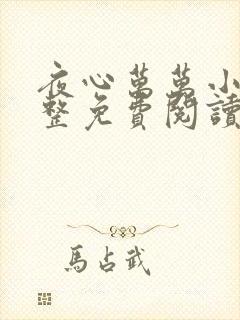 夜心萬萬小
整免費閱讀
馬占武